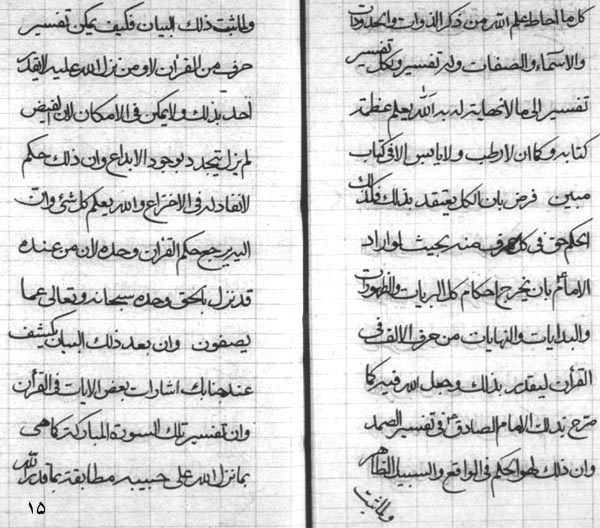 كل ما احاط علم الله من ذكر الذوات والحدودات
والاسماء والصفات وله تفسير ولكل تفسير
تفسير الى ما لا نهاية له به الله يعلم عظمة
كتابه وكما ان لا رطب ولا يابس الا فى كتاب
مبين فرض بان الكل يعتقد بذلك فكذلك
الحكم حق فى كل حرف منه بحيث لو اراد
الامام بان يخرج احكام كل البريات والظهورات
والبدايات والنهايات من حرف الالف فى
القرآن ليقدر بذلك وجعل الله فيه كما
صرح بذلك الامام الصادق فى تفسير الصمد
وان ذلك لهو الحكم فى الواقع والسبيل الظاهر
ولما ثبت
ولما ثبت ذلك البيان فكيف يمكن تفسير
حرف من القرآن لا ومن نزل الله عليه لا يقدر
احد بذلك ولا يمكن فى الامكان لان الفيض
لم يزل يتجدد بوجود الابداع وان ذلك حكم
لا نفاد له فى الاختراع والله يعلم كل شئ وان
اليه يرجع حكم القرآن وحده لان من عنده
قد نزل بالحق وحده سبحانه وتعالى عما
يصفون وان بعد ذلك البيان يكشف
عند جنابك اشارات بعض الايات فى القرآن
وان تفسير تلك السورة المباركة كما هى
بما نزل الله على حبيبه مطابقة بما قدر الله
١٥